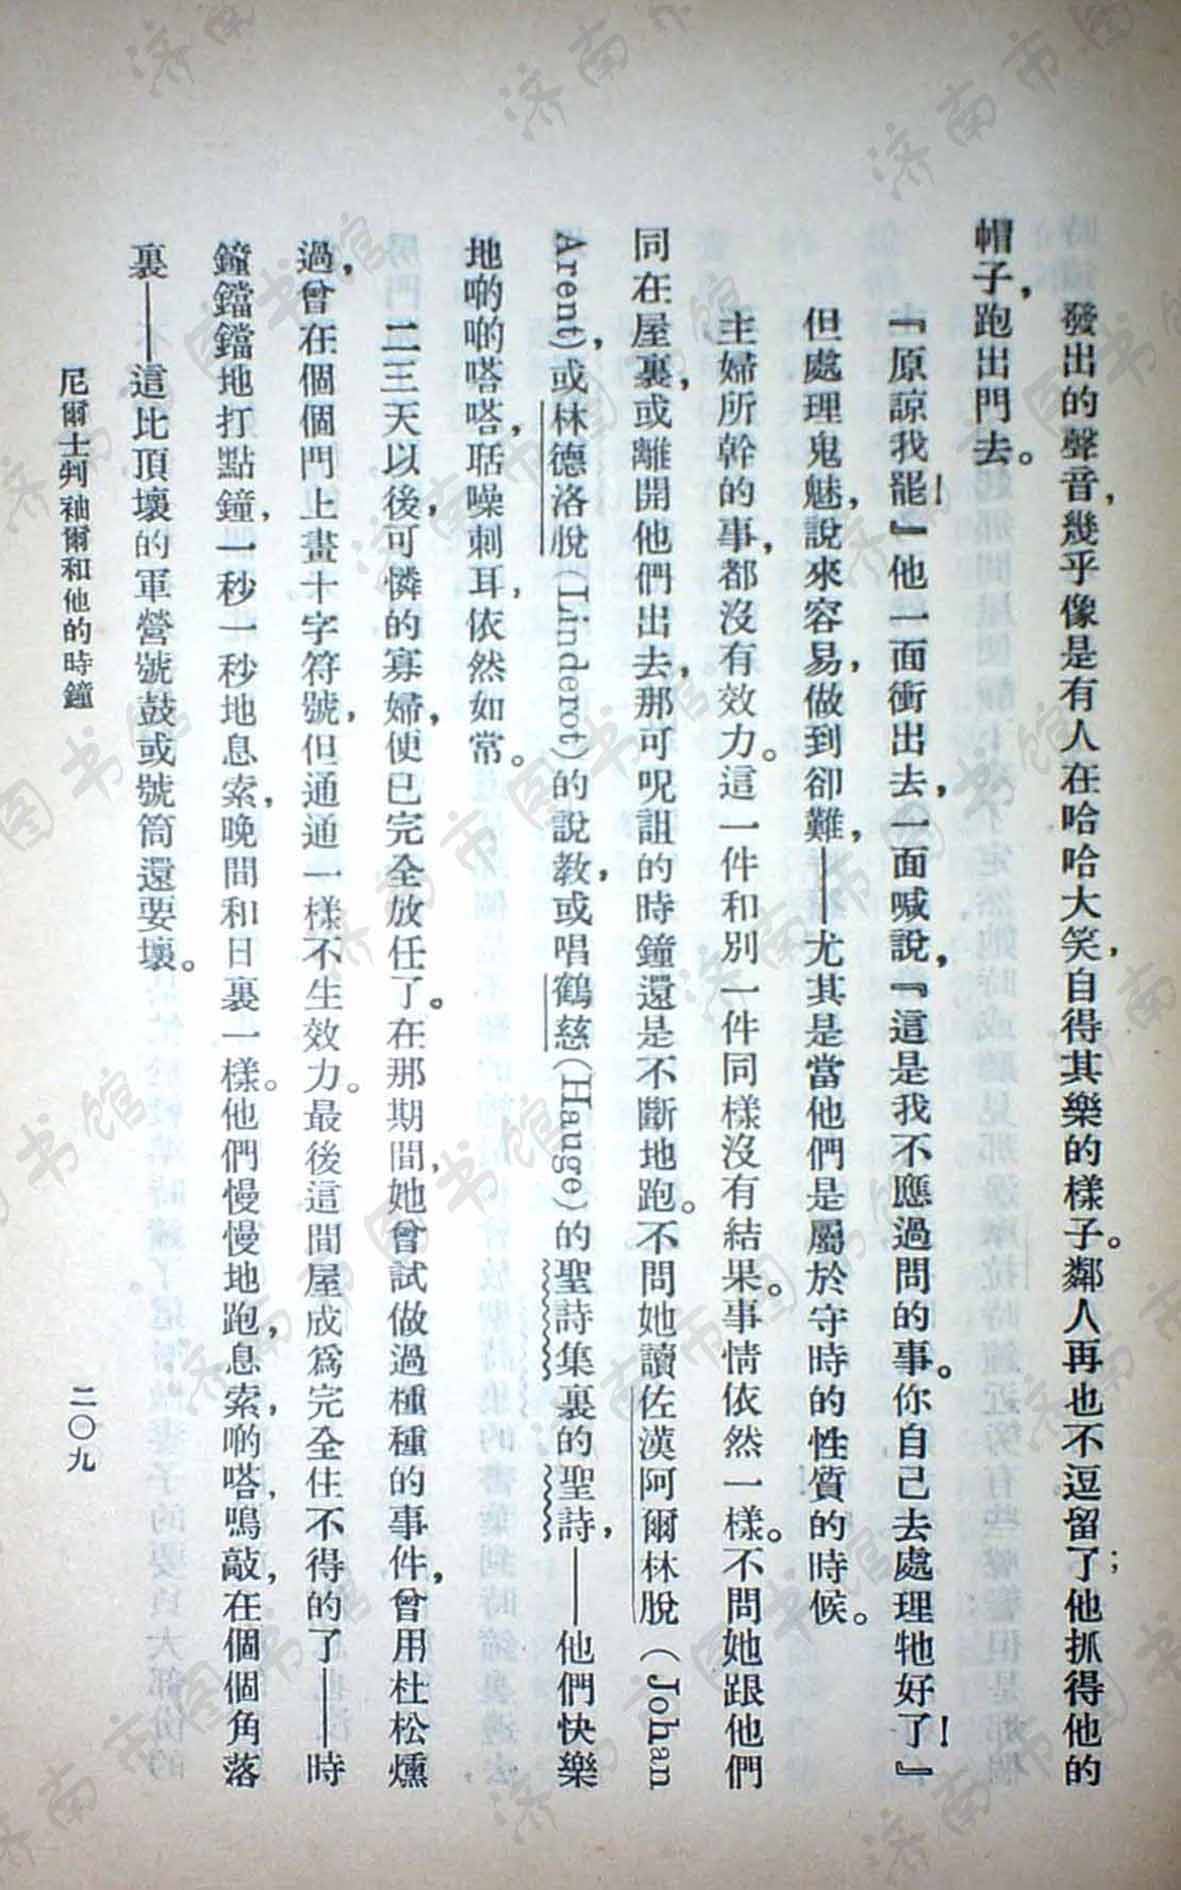 發出的聲音，幾乎像是有人在哈哈大笑，自得其樂的樣子。鄰人再也不逗留了；他抓得他的
帽子，跑出門去。
『原諒我罷！』他一面衝出去，一面喊說，『這是我不應過問的事。你自己去處理牠好了！』
但處理鬼魅，說來容易，做到卻難，——尤其是當他們是屬於守時的性質的時候。
主婦所幹的事，都沒有效力。這一件和別一件同樣沒有結果。事情依然一樣。不問她跟他們
同在屋裏，或離開他們出去，那可呪詛的時鐘還是不斷地跑。不問她讀佐漢阿爾林脫（Johan
Arent），或林德洛悅（Linderot）的說教，或唱鶴慈（Hauge）的聖詩集裏的聖詩，——他們快樂
地啲啲嗒嗒，聒噪刺耳，依然如常。
二三天以後，可憐的寡婦，便已完全放任了。在那期間，她曾試做過種種的事件，曾用杜松燻
過，曾在個個門上畫十字符號，但通通一樣不生效力。最後這間屋成爲完全住不得的了——時
鐘鐺鐺地打點鐘，一秒一秒地息索，晚間和日裏一樣。他們慢慢地跑，息索，啲嗒鳴敲，在個個角落
裏——這比頂壞的軍營號鼓或號筒還要壞。
尼爾士判袖爾和他的時鐘
二〇九
济南市图书馆